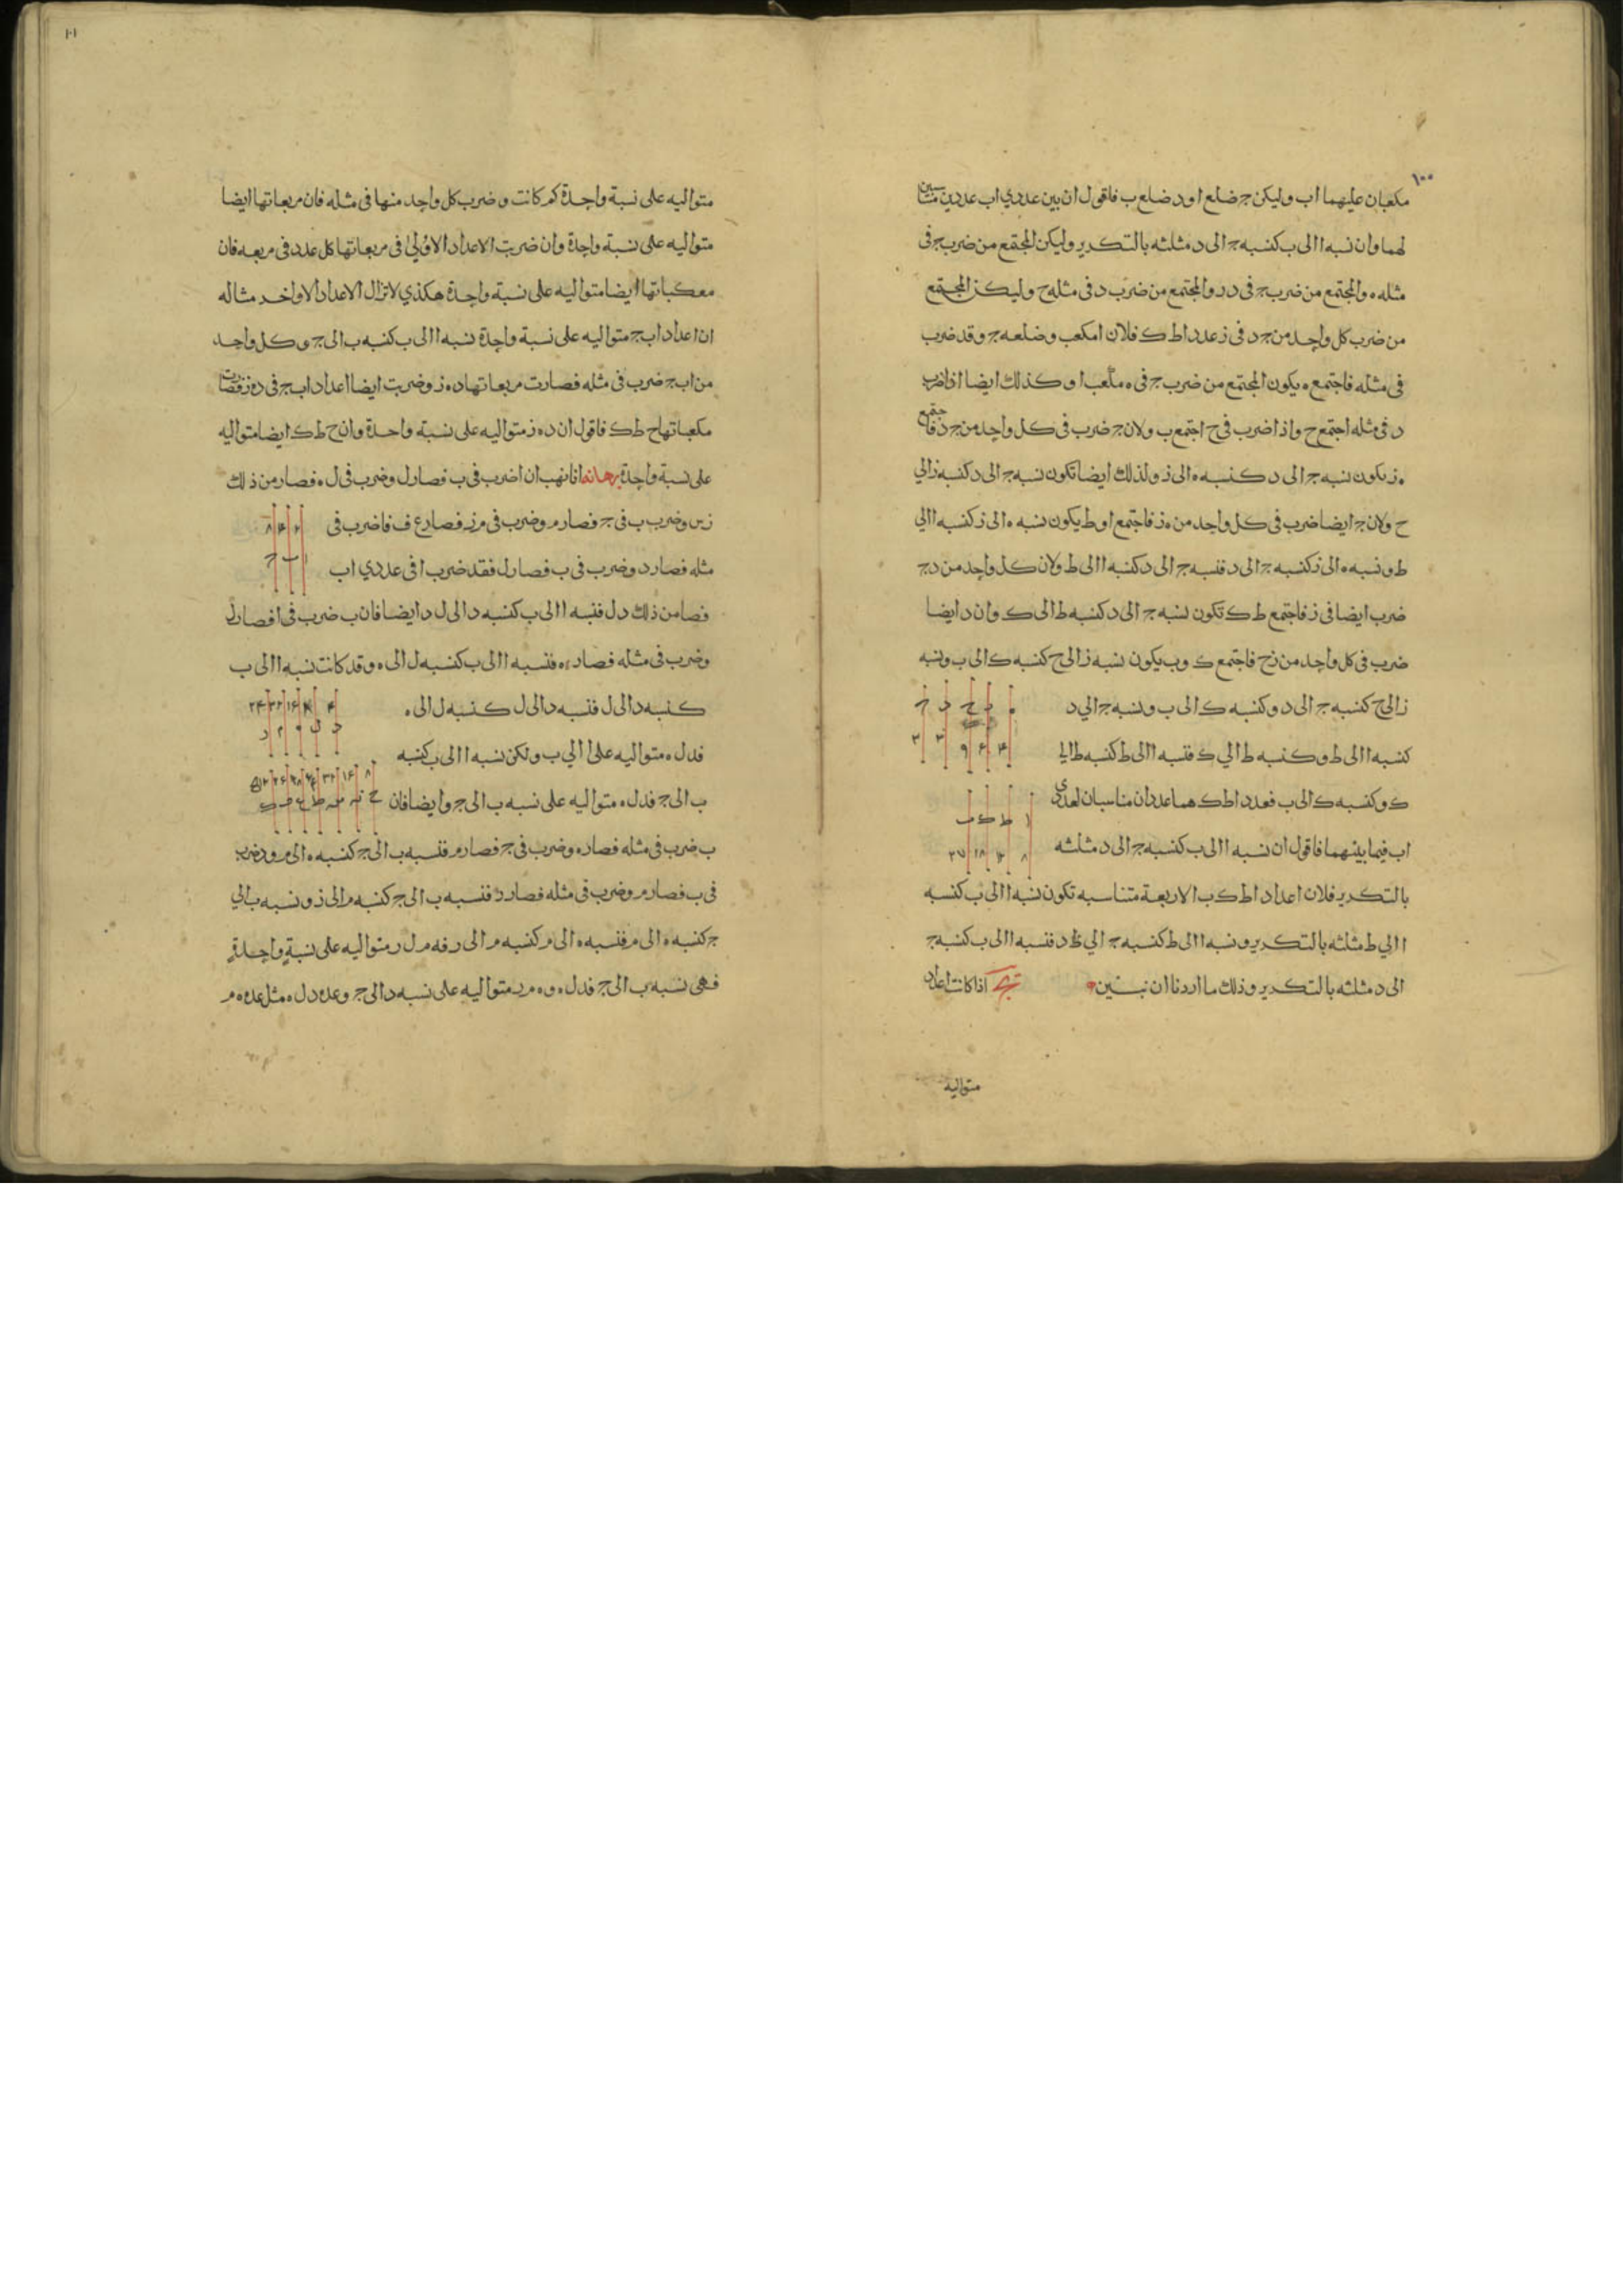 ١٠٠
مكعبان عليهما اب وليكن ج ضلع ا ود ضلع ب فاقول ان بين عددي اب عددين متناسبين
لهما وان نسبه ا الى ب كنسبه ج الى د مثلثه بالتكرير وليكن المجتمع من ضرب ج فى
مثله ه والمجتمع من ضرب ج فى د ز والمجتمع من ضرب د فى مثله ح وليكن المجتمع
من ضرب كل واحد من ج د فى ز عددا ط ك فلان ا مكعب وضلعه ج وقد ضرب
فى مثله فاجتمع ه يكون المجتمع من ضرب ج فى ه مكعب ا وكذلك ايضا اذا ضرب
د فى مثله اجتمع ح واذا ضرب فى ح اجتمع ب ولان ج ضرب فى كل واحد من ج د فاجتمع
ه ز يكون نسبه ج الى د كنسبه ه الى ز ولذلك ايضا تكون نسبه ج الى د كنسبه ز الي
ح ولان ج ايضا ضرب فى كل واحد من ه ز فاجتمع ا و ط يكون نسبه ه الى ز كنسبه ا الي
ط ونسبه ه الى ز كنسبه ج الى د فنسبه ج الى د كنسبه ا الى ط ولان كل واحد من د ج
ضرب ايضا فى ز فاجتمع ط ك تكون نسبه ج الى د كنسبه ط الى ك وان د ايضا
ضرب فى كل واحد من ز ح فاجتمع ك وب يكون نسبه ز الى ح كنسبه ك الى ب ونسبه
ز الى ح كنسبه ج الى د وكنسبه ك الى ب ونسبه ج الي د
كنسبه ا الى ط وكنسبه ط الي ك فنسبه ا الى ط كنسبه ط الى
ك وكنسبه ك الى ب فعددا ط ك هما عددان مناسبان لعددى
اب فيما بينهما فاقول ان نسبه ا الى ب كنسبه ج الى د مثلثه
بالتكرير فلان اعداد ا ط ك ب الاربعة متناسبه تكون نسبه ا الى ب كنسبه
ا الي ط مثلثه بالتكرير ونسبه ا الى ط كنسبه ج الي د فنسبه ا الى ب كنسبه ج
الى د مثلثه بالتكرير وذلك ما اردنا ان نبين اذا كانت اعداد
ه ز ح د ج
۴ ۶ ۹ ۳ ۲
ا ط ك ب
۸ ۱۲ ۱۸ ۲۷
متواليه
١٠١
متواليه على نسبة واحدة كم كانت وضرب كل واحد منها فى مثله فان مربعاتها ايضا
متواليه على نسبة واحدة وان ضربت الاعداد الاولى فى مربعاتها كل عدد فى مربعه فان
معكباتها ايضا متواليه على نسبة واحدة هكذي لا تزال الاعداد الاواخر مثاله
ان اعداد اب ج متواليه على نسبة واحدة نسبه ا الى ب كنسبه ب الى ج وكل واحد
من اب ج ضرب فى مثله فصارت مربعاتها د ه ز وضربت ايضا اعداد اب ج فى د ه ز فصارت
مكعباتها ح ط ك فاقول ان د ه ز متواليه على نسبة واحدة وان ح ط ك ايضا متواليه
على نسبة واحدة برهانه ان ا ضرب فى ب فصار ل وضرب فى ل ه فصار من ذلك
ن س وضرب ب فى ج فصار م وضرب فى م ز فصار ع ف فا ضرب فى
مثله فصار د وضرب فى ب فصار ل فقد ضرب ا فى عددي اب
فصا من ذلك د ل فنسبه ا الى ب كنسبه د الى ل د ايضا فان ب ضرب فى ا فصار ل
وضرب فى مثله فصار ه فنسبه ا الى ب كنسبه ل الى ه وقد كانت نسبه ا الى ب
كنسبه د الى ل فنسبه د الى ل كنسبه ل الى ه
فد ل ه متواليه على ا الي ب ولكن نسبه ا الى ب كنسبه
ب الى ج فد ل ه متواليه على نسبه ب الى ج وايضا فان
ب ضرب فى مثله فصار ه وضرب فى ج فصار م فنسبه ب الى ج كنسبه ه الى م و ج ضرب
فى ب فصار م وضرب فى مثله فصار ز فنسبه ب الى ج كنسبه م الى ز ونسبه ب الي
ج كنسبه ه الى م فنسبه ه الى م كنسبه م الى ز فه م ل ز متواليه على نسبة واحدة
فهى نسبه ب الى ج فد ل ه و ه م ز متواليه على نسبه د الى ج وعده د ل ه مثل عده ه م
۲ ۴ ۸
ا ب ج